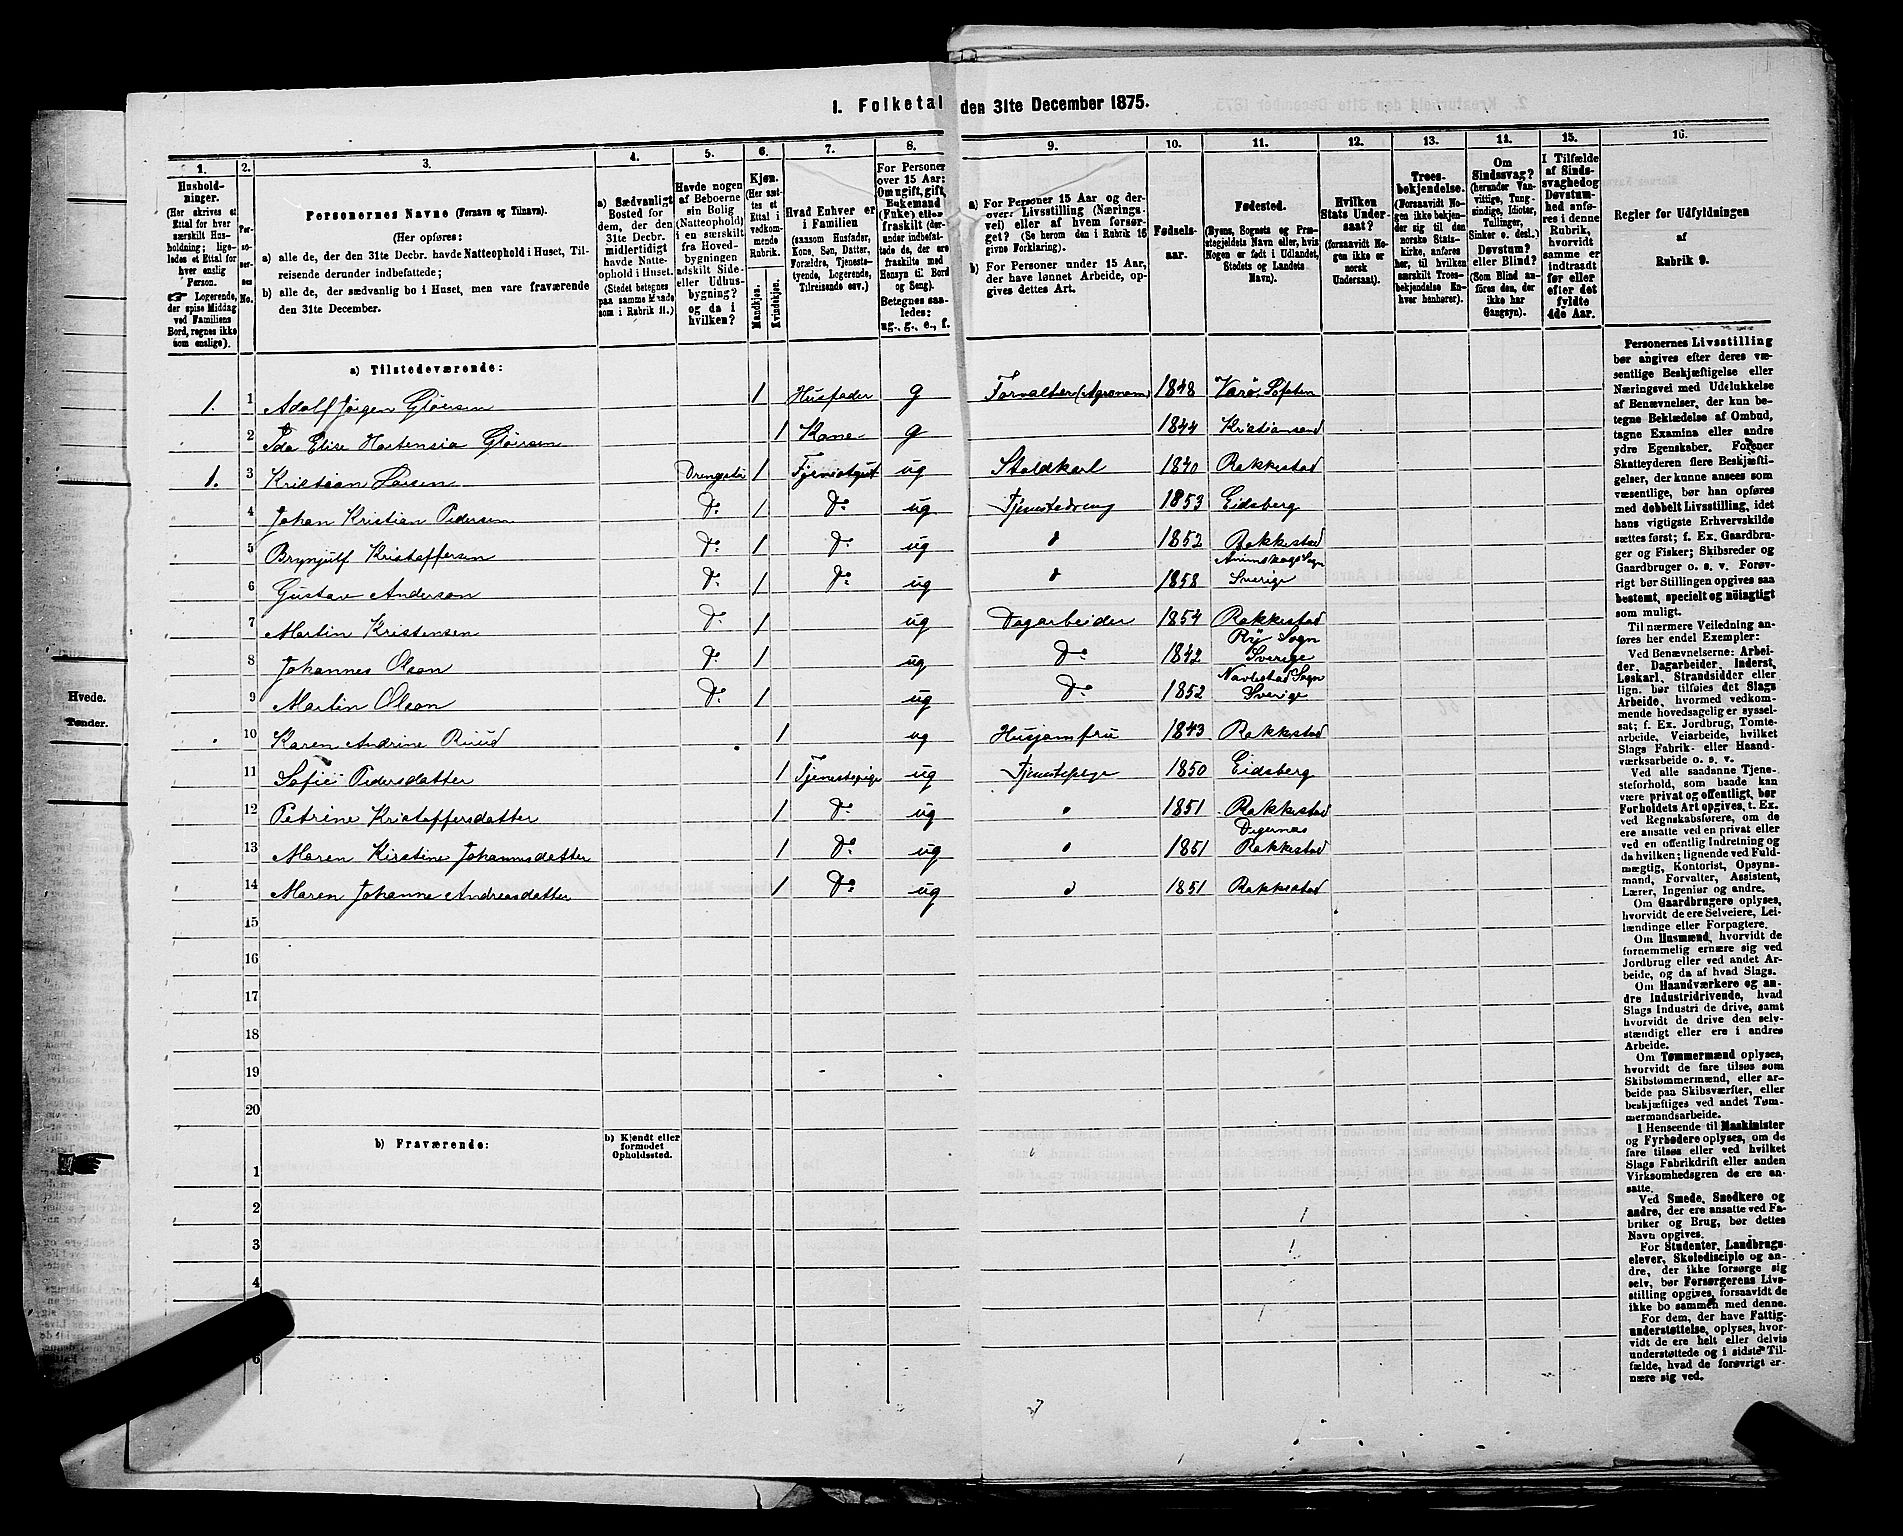 I. Folketal den 31te December 1875.
1. 2. 3. 4. 5. 6. 7. 8. 9. 10. 11. 12. 13. 14. 15. 16.
Hushold-
ninger.
(Her skrives et
Ettal for hver
særskilt Hus-
holdning; lige-
ledes et Ettal for
hver enslig
Person.
☛ Logerende,
der spise Middag
ved Familiens
Bord, regnes ikke
som enslige).
Per-
so-
ner-
nes
No.
Personernes Navne (Fornavn og Tilnavn).
(Her opføres:
a) alle de, der den 31te Decbr. havde Natteophold i Huset, Til-
reisende derunder indbefattede;
b) alle de, der sædvanlig bo i Huset, men vare fraværende
den 31te December.
a) Sædvanligt
Bosted for
dem, der den
31te Decbr.
midlertidigt
havde Natte-
ophold i Huset.
(Stedet betegnes
paa samme Maade
som i Rubrik 11.)
Havde nogen
af Beboerne
sin Bolig
(Natteophold)
i en særskilt
fra Hoved-
bygningen
adskilt Side-
eller Udhus-
bygning?
og da i
hvilken?
Kjøn.
(Her sæt-
tes et
Ettal i
vedkom-
mende
Rubrik.
Mandkjøn.
Kvindekjøn.
Hvad Enhver er
i Familien
(saasom Husfader,
Kone, Søn, Datter,
Forældre, Tjeneste-
tyende, Logerende,
Tilreisende osv.)
For Personer
over 15 Aar:
Om ugift, gift,
Enkemand
(Enke) eller
fraskilt (der-
under indbefat-
tede de, der ere
fraskilte med
Hensyn til Bord
og Seng).
Betegnes saa-
ledes:
ug., g., e., f.
a) For Personer 15 Aar og der-
over: Livsstilling (Nærings-
vei) eller af hvem forsør-
get? (Se herom den i Rubrik 16
givne Forklaring).
b) For Personer under 15 Aar,
der have lønnet Arbeide, op-
gives dettes Art.
Fødsels-
aar.
Fødested.
(Byens, Sognets og Præ-
stegjeldets Navn eller, hvis
Nogen er født i Udlandet,
Stedets og Landets
Navn).
Hvilken
Stats Under-
saat?
(forsaavidt No-
gen ikke er
norsk
Undersaat).
Troes-
bekjendelse.
(Forsaavidt No-
gen ikke bekjen-
der sig til den
norske Stats-
kirke, anføres
her, til hvilken
særskilt Troes-
bekjendelse En-
hver henhører).
Om
Sindssvag?
(herunder Van-
vittige, Tung-
sindige, Idioter,
Tullinger,
Sinker o. desl.)
Døvstum?
eller Blind?
(Som Blind an-
føres den, der
ikke har
Gangsyn).
I Tilfælde
af Sinds-
svaghed og
Døvstum-
hed anfø-
res i denne
Rubrik,
hvorvidt
samme er
indtraadt
før eller
efter det
fyldte
4de Aar.
Regler for Udfyldningen
af
Rubrik 9.
a) Tilstedeværende:
1. 1 Adolf Jørgen Gløersen 1 Husfader g Forvalter (Agronom) 1848 Værø, Lofoten
2 Ida Elise Hortensia Gløersen 1 Kone g 1844 Kristiansand
1. 3 Kristian Larsen 1 ug Staldkarl 1840 Rakkestad
4 Johan Kristian Pedersen Do 1 Do ug Tjenestedreng 1853 Eidsberg
5 Brynjulf Kristoffersen Do 1 Do ug 1852 Rakkestad
6 Gustav Anderson Do 1 Do ug 1858 Animskogs Sogn Sverige
7 Martin Kristensen Do 1 ug Dagarbeider 1854 Rakkestad
8 Johannes Olson Do 1 ug Do 1842 Ry Sogn Sverige
9 Martin Olson Do 1 ug Do 1852 Navlestad Sogn Sverige
10 Karen Andrine Ruud 1 ug Husjomfru 1843 Rakkestad
11 Sofie Pedersdatter 1 Tjenestepige ug Tjenestepige 1850 Eidsberg
12 Petrine Kristoffersdatter 1 Do ug 1851 Rakkestad
13 Maren Kirstine Johannesdatter 1 Do ug 1851 Degernæs Rakkestad
14 Maren Johanne Andreasdatter 1 Do ug 1851 Rakkestad
15
16
17
18
19
20
b) Fraværende:
b) Kjendt eller
formodet
Opholdssted.
1
2
3
4
6
Personernes Livsstilling
bør angives efter deres væ-
sentlige Beskjæftigelse eller
Næringsvei med Udelukkelse
af Benævnelser, der kun be-
tegne Beklædelse af Ombud,
tagne Examina eller andre
ydre Egenskaber. Forener
Skatteyderen flere Beskjæfti-
gelser, der kunne ansees som
væsentlige, bør han opføres
med dobbelt Livsstilling, idet
hans vigtigste Erhvervskilde
sættes først; f. Ex. Gaardbru-
ger og Fisker; Skibsreder og
Gaardbruger o. s. v. Forøv-
rigt bør Stillingen opgives saa
bestemt, specielt og nøiagtigt
som muligt.
Til nærmere Veiledning an-
føres her endel Exempler:
Ved Benævnelserne: Arbei-
der, Dagarbeider, Inderst,
Løskarl, Strandsidder eller
lign. bør tilføies det Slags
Arbeide, hvormed vedkom-
mende hovedsagelig er syssel-
sat; f. Ex. Jordbrug, Tomte-
arbeide, Veiarbeide, hvilket
Slags Fabrik- eller Haand-
værksarbeide o. s. v.
Ved alle saadanne Tjene-
steforhold, som baade kan
være privat og offentligt, bør
Forholdets Art opgives, t. Ex.
ved Regnskabsførere, om de
ere ansatte ved en privat eller
ved en offentlig Indretning og
da hvilken; lignende ved Fuld-
mægtig, Kontorist, Opsyns-
mand, Forvalter, Assistent,
Lærer, Ingeniør og andre.
Om Gaardbrugere oplyses,
hvorvidt de ere Selveiere, Lei-
lændinge eller Forpagtere.
Om Husmænd, hvorvidt de
fornemmelig ernære sig ved
Jordbrug eller ved andet Ar-
beide, og da af hvad Slags.
Om Haandværkere og an-
dre Industridrivende, hvad
Slags Industri de drive, samt
hvorvidt de drive den selv-
stændigt eller ere i andres
Arbeide.
Om Tømmermænd oplyses,
hvorvidt de fare tilsøs som
Skibstømmermænd, eller ar-
beide paa Skibsværfter, eller
beskjæftiges ved andet Tøm-
mermandsarbeide.
I Henseende til Maskinister
og Fyrbødere oplyses, om de
fare tilsøs eller ved hvilket
Slags Fabrikdrift eller anden
Virksomhedsgren de ere an-
satte.
Ved Smede, Snedkere og
andre, der ere ansatte ved Fa-
briker og Brug, bør dettes
Navn opgives.
For Studenter, Landbrugs-
elever, Skoledisciple og an-
dre, der ikke forsørge sig
selv, bør Forsørgerens Livs-
stilling opgives, forsaavidt de
ikke bo sammen med denne.
For dem, der have Fattig-
understøttelse, oplyses, hvor-
vidt de ere helt eller delvis
understøttede og i sidste Til-
fælde, hvad de forøvrigt er-
nære sig ved.
Hvede.
Tønder.